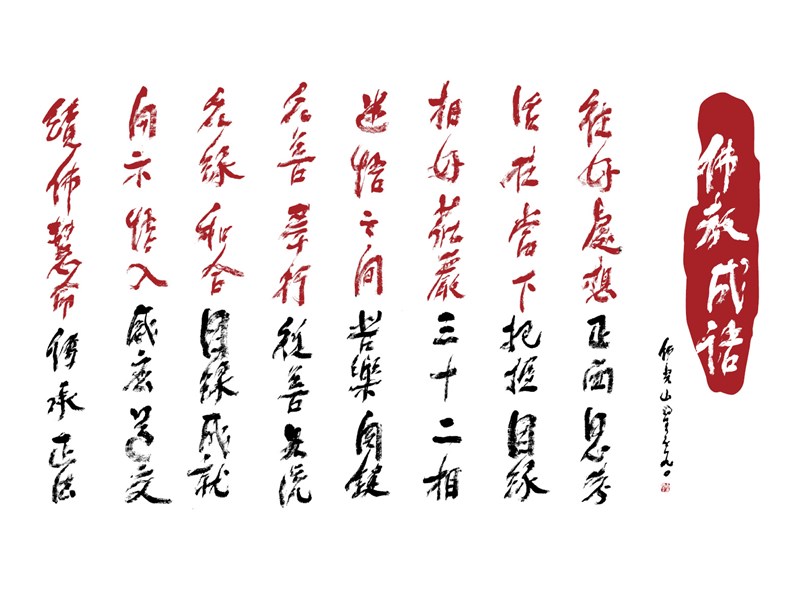 佛教成語
佛光山星雲
往好處想 正面思考
活在當下 把握因緣
相好莊嚴 三十二相
迷悟之間 苦樂關鍵
眾善奉行 從善如流
眾緣和合 因緣成就
開示悟入 感應道交
續佛慧命 傳承正法